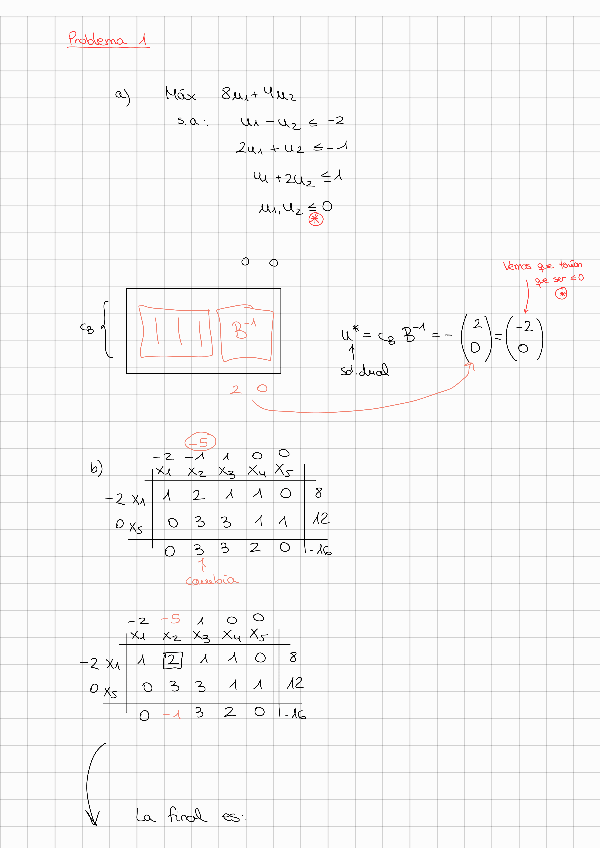 Problema 1
a) Máx 8u1 + 4u2
s.a: u1 - u2 ≤ -2
2u1 + u2 ≤ -1
u1 + 2u2 ≤ 1
u1, u2 ≤ 0
*
0 0
cB
B⁻¹
2 0
u* = cB B⁻¹ = - (2 0) = (-2 0)
sol. dual
Vemos que tenían
que ser ≤ 0
*
-5
b) -2 -1 1 0 0
x1 x2 x3 x4 x5
-2 x1 1 2 1 1 0 8
0 x5 0 3 3 1 1 12
0 3 3 2 0 -16
cambia
-2 -5 1 0 0
x1 x2 x3 x4 x5
-2 x1 1 2 1 1 0 8
0 x5 0 3 3 1 1 12
0 -1 3 2 0 -16
La final es: